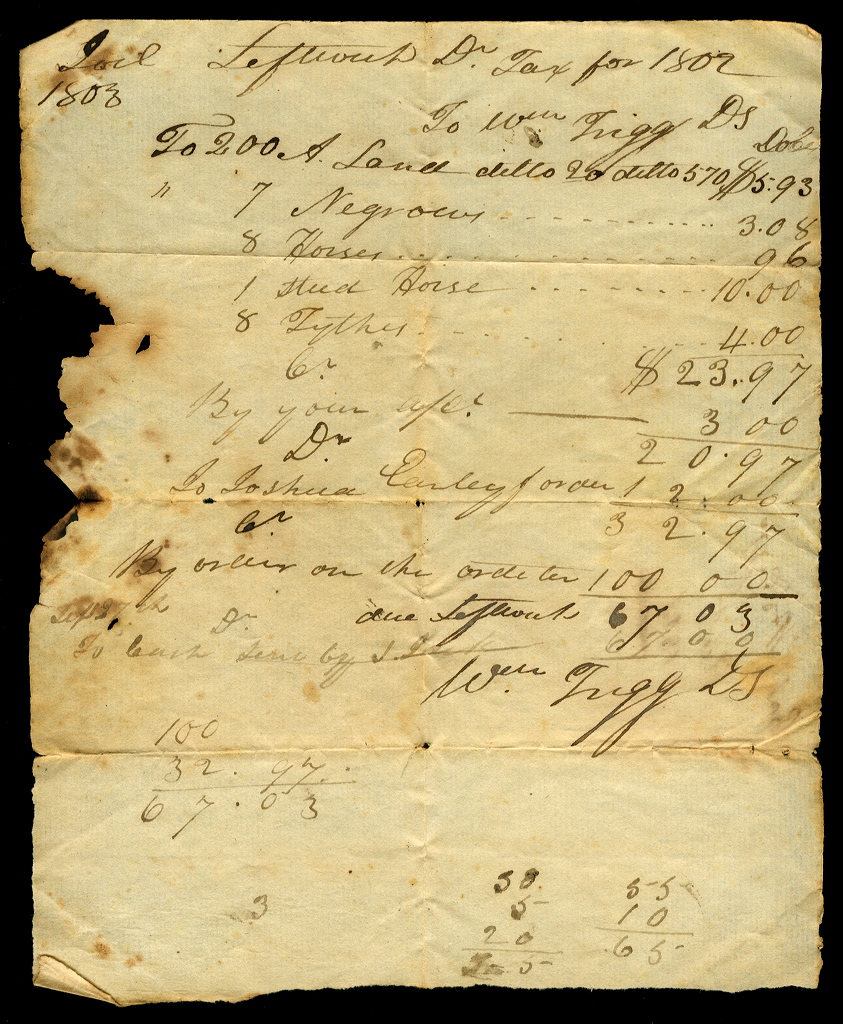 Joel Leftwich Dr Tax for 1802
1803
To Wm Trigg DS
Dolls
To 200 A. Land ditto 20 ditto 570 $5.93
" 7 Negroes 3.08
8 Horses 96
1 Stud Horse 10.00
8 Tythes 4.00
Cr $23.97
By your 3 00
Dr 20.97
To Joshua Earley order 12.00
Cr 32.97
By order on the 100 00
due Leftwich 67 03
Sept 27th Dr
To Cash sent by J. 67 0
Wm Trigg DS
100
32.97
67.03
3
30
5
20
55
10
65